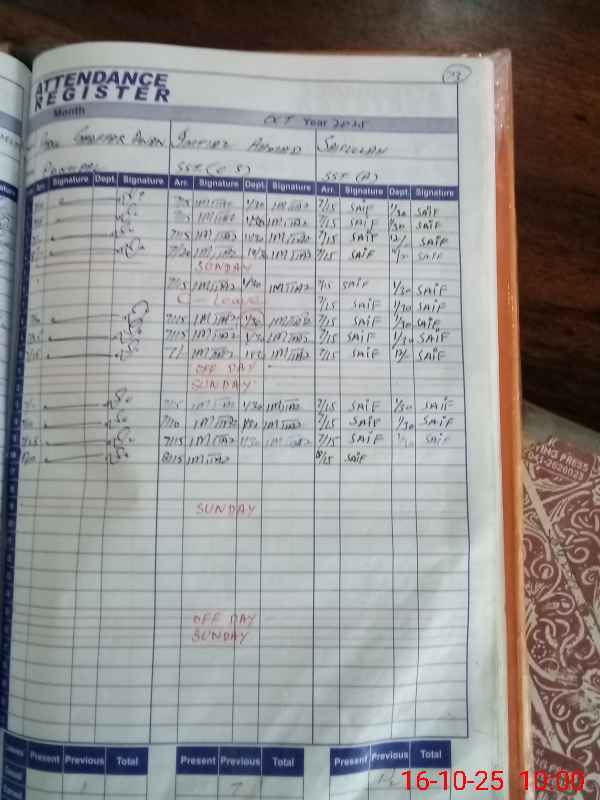 73
ATTENDANCE
REGISTER
Month OCT Year 2025
IMTIAZ AHMAD SAIFULLAH
SST (A)
Arr. Signature Dept. Signature Arr. Signature Dept. Signature Arr. Signature Dept. Signature
7/15 IMTIAZ 1/30 IMTIAZ 7/15 SAIF 1/30 SAIF
7/15 IMTIAZ 1/30 IMTIAZ 7/15 SAIF 1/30 SAIF
7/15 IMTIAZ IMTIAZ 7/15 SAIF 12/- SAIF
IMTIAZ IMTIAZ 7/15 SAIF SAIF
SUNDAY
7/15 IMTIAZ 1/30 IMTIAZ 7/15 SAIF 1/30 SAIF
C - Leave 7/15 SAIF 1/30 SAIF
7/15 IMTIAZ 1/30 IMTIAZ 7/15 SAIF 1/30 SAIF
7/15 IMTIAZ 1/30 IMTIAZ 7/15 SAIF 1/30 SAIF
7/- IMTIAZ IMTIAZ 7/15 SAIF 12/- SAIF
OFF DAY
SUNDAY
7/15 IMTIAZ 1/30 IMTIAZ 7/15 SAIF 1/30 SAIF
7/10 IMTIAZ 1/30 IMTIAZ 7/15 SAIF 1/30 SAIF
7/15 IMTIAZ 1/30 IMTIAZ 7/15 SAIF 1/30 SAIF
8/15 IMTIAZ 8/15 SAIF
SUNDAY
OFF DAY
SUNDAY
Leaves Present Previous Total Present Previous Total Present Previous Total
Casual 1 7
TING PRESS
041-2626023
16-10-25 10:00